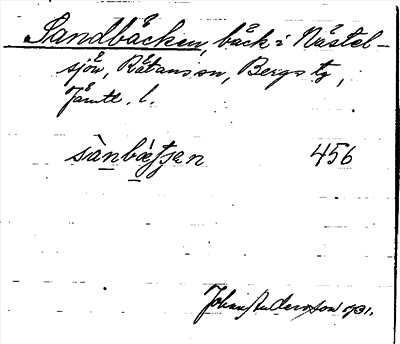 Sandbäcken, bäck i Nästel-
sjön, Rätans sn, Bergs tg,
Jämtl. l.
sànbä̀tʃen 456
Johan Anderson 1931.